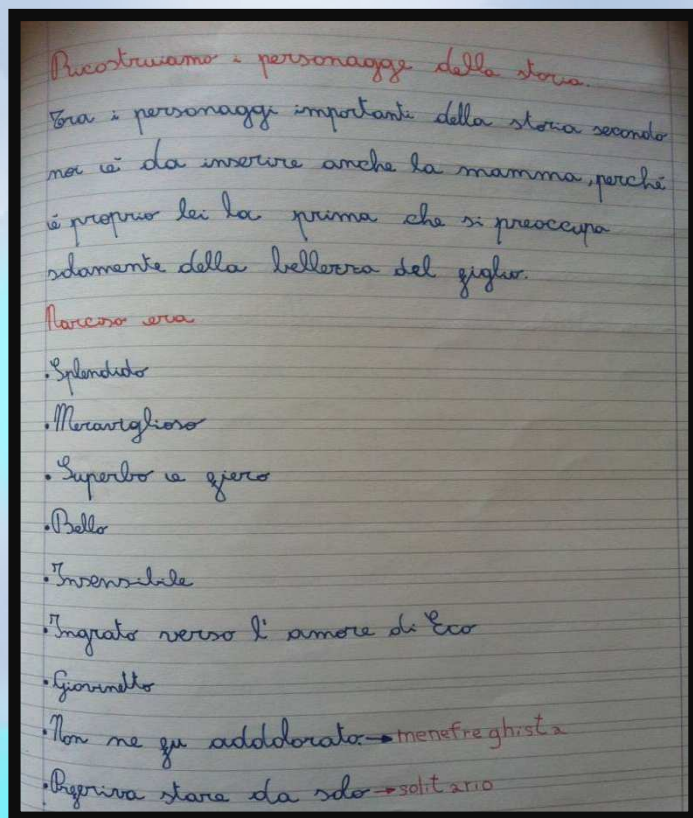 Ricostruiamo i personagge della storia.
Tra i personaggi importanti della storia secondo
noi è da inserire anche la mamma, perché
è proprio lei la prima che si preoccupa
solamente della bellezza del figlio.
Narciso era
•Splendido
•Meraviglioso
•Superbo e fiero
•Bello
•Insensibile
•Ingrato verso l'amore di Eco
•Giovinetto
•Non ne fu adddorato→menefreghista
•Preferiva stare da solo→solitario